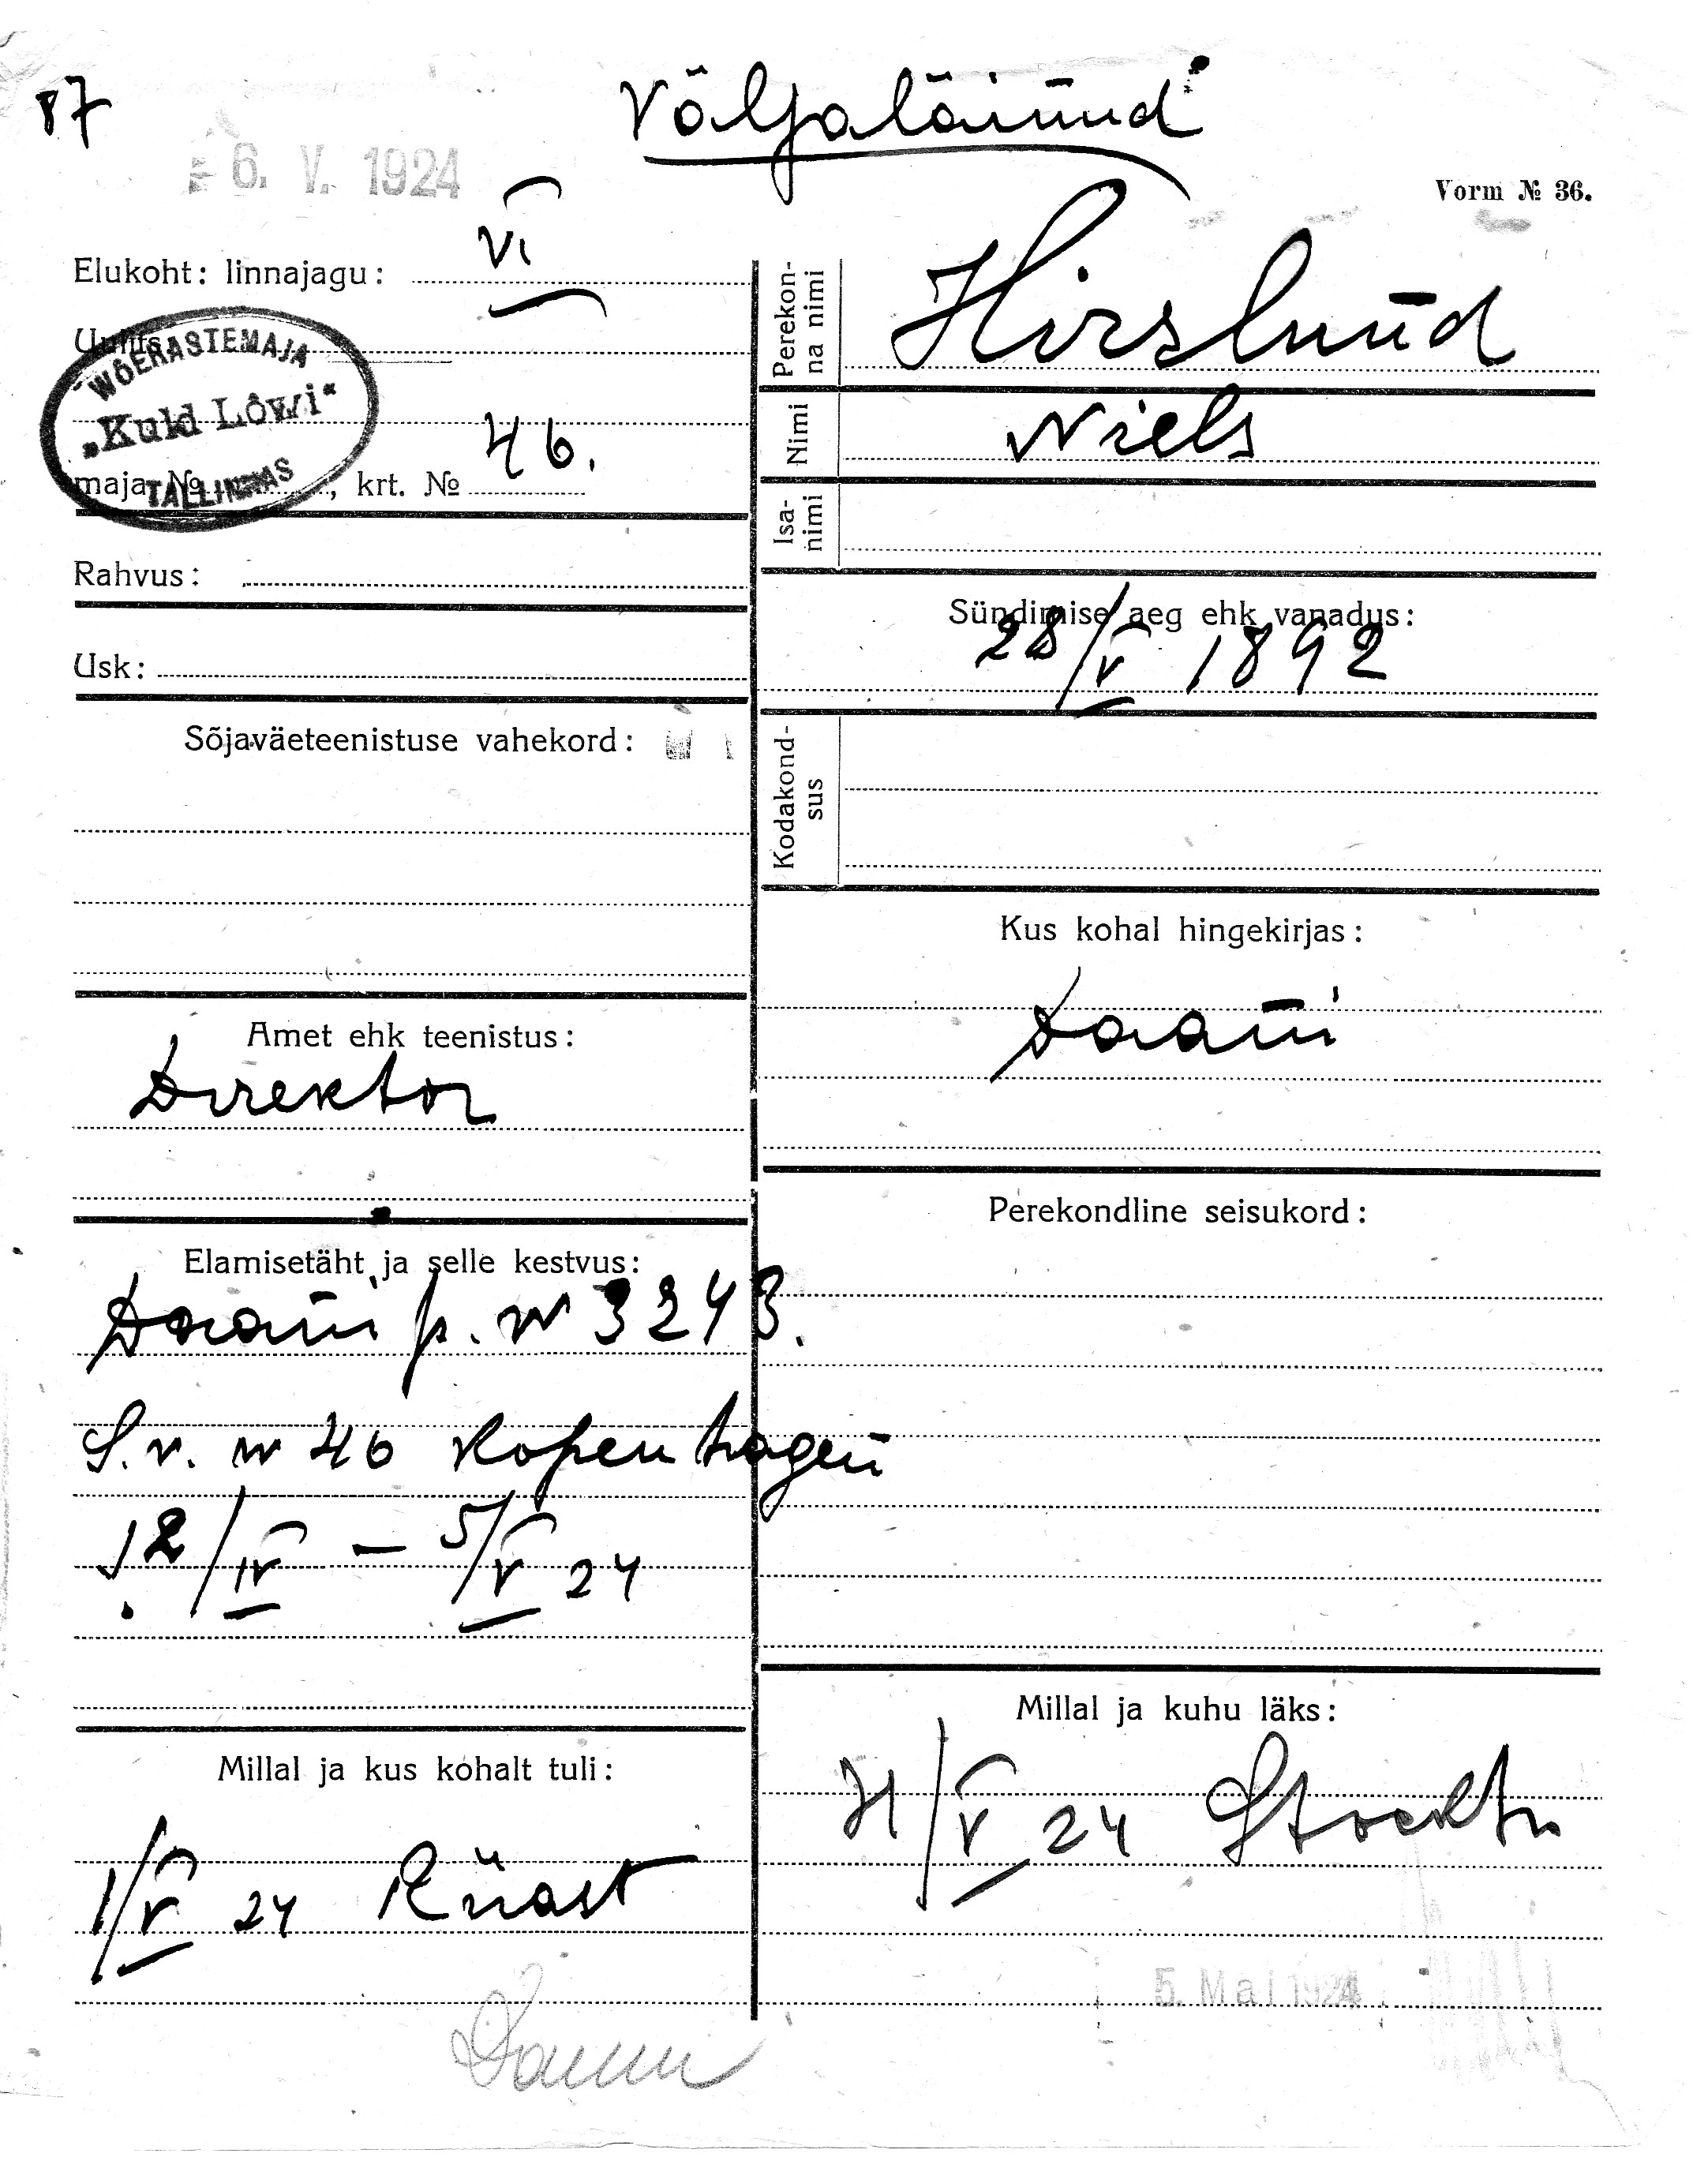 87
Väljaläinud
- 6. V. 1924
Vorm № 36.
Elukoht: linnajagu: VI
Uulits
WÕERASTEMAJA
„Kuld Lõwi“
TALLINNAS
maja № , krt. № 46.
Rahvus:
Usk:
Sõjaväeteenistuse vahekord:
Amet ehk teenistus:
Direktor
Elamisetäht ja selle kestvus:
Daani p. N 3243.
S.v. N 46 Kopenhagen
12/IV – 5/V 24
Millal ja kus kohalt tuli:
1/V 24 Riiast
Perekonna nimi
Hirslund
Nimi
Niels
Isanimi
Sündimise aeg ehk vanadus:
28/V 1892
Kodakondsus
Kus kohal hingekirjas:
Daani
Perekondline seisukord:
Millal ja kuhu läks:
/V 24 Stockh
5. Mai 1924